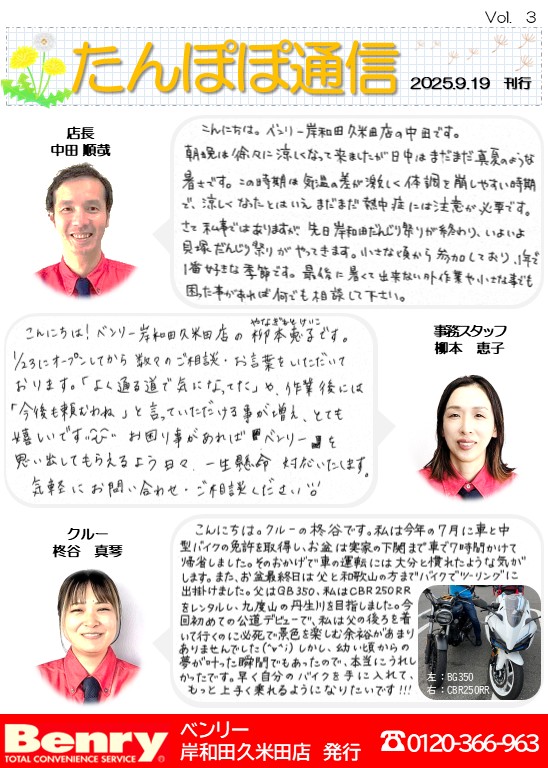 Vol. 3
たんぽぽ通信
2025.9.19 刊行
店長
中田 順哉
こんにちは。ベンリー岸和田久米田店の中田です。
朝晩は徐々に涼しくなって来ましたが日中はまだまだ真夏のような
暑さです。この時期は気温の差が激しく体調を崩しやすい時期
で、涼しくなたとはいえまだまだ熱中症には注意が必要です。
さて私事ではありますが、先日岸和田だんじり祭りが終わり、いよいよ
貝塚だんじり祭りがやってきます。小さな頃から参加しており、1年で
1番好きな季節です。最後に暑くて出来ない外作業や小さな事でも
困った事があれば何でも相談して下さい。
こんにちは!ベンリー岸和田久米田店の柳本恵子です。
やなぎもとけいこ
1/23にオープンしてから数々のご相談・お言葉をいただいて
おります。「よく通る道で気になってた」や、作業後には
「今後も頼むわね」と言っていただける事が増え、とても
嬉しいです お困り事があれば"ベンリー"を
思い出してもらえるよう日々、一生懸命 対応いたします。
気軽にお問い合わせ・ご相談ください!!
事務スタッフ
柳本 恵子
クルー
柊谷 真琴
こんにちは。クルーの柊谷です。私は今年の7月に車と中
型バイクの免許を取得し、お盆は実家の下関まで車で7時間かけて
帰省しました。そのおかげで車の運転には大分と慣れたような気が
します。また、お盆最終日は父と和歌山の方までバイクでツーリングに
出掛けました。父はGB350、私はCBR250RR
をレンタルし、九度山の丹生川を目指しました。今
回初めての公道デビューで、私は父の後ろを着
いて行くのに必死で景色を楽しむ余裕があまり
ありませんでした(^v^;)しかし、幼い頃からの
夢が叶った瞬間でもあったので、本当にうれし
かったです。早く自分のバイクを手に入れて、
もっと上手く乗れるようになりたいです!!!
左:BG350
右:CBR250RR
Benry
TOTAL CONVENIENCE SERVICE
ベンリー
岸和田久米田店 発行
☎0120-366-963